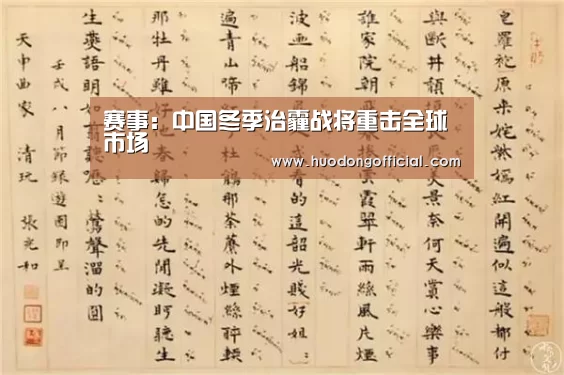 赛事：中国冬季治霾战将重击全球
市场
www.huodongofficial.com
皂羅袍 原来姹紫嫣紅開遍似這般都付
與断井頹美景奈何天賞心樂事
誰家院朝雲霞翠軒雨絲風片煙
波画船錦看的這韶光賤 好姐:
遍青山啼杜鵑那荼蘼外煙絲醉軟
那牡丹雖好他春歸怎的先閒凝眄聽生
生燕語明如嚦:鶯聲溜的圓
壬戌八月節錄遊園即呈
天申曲家 清玩 張充和